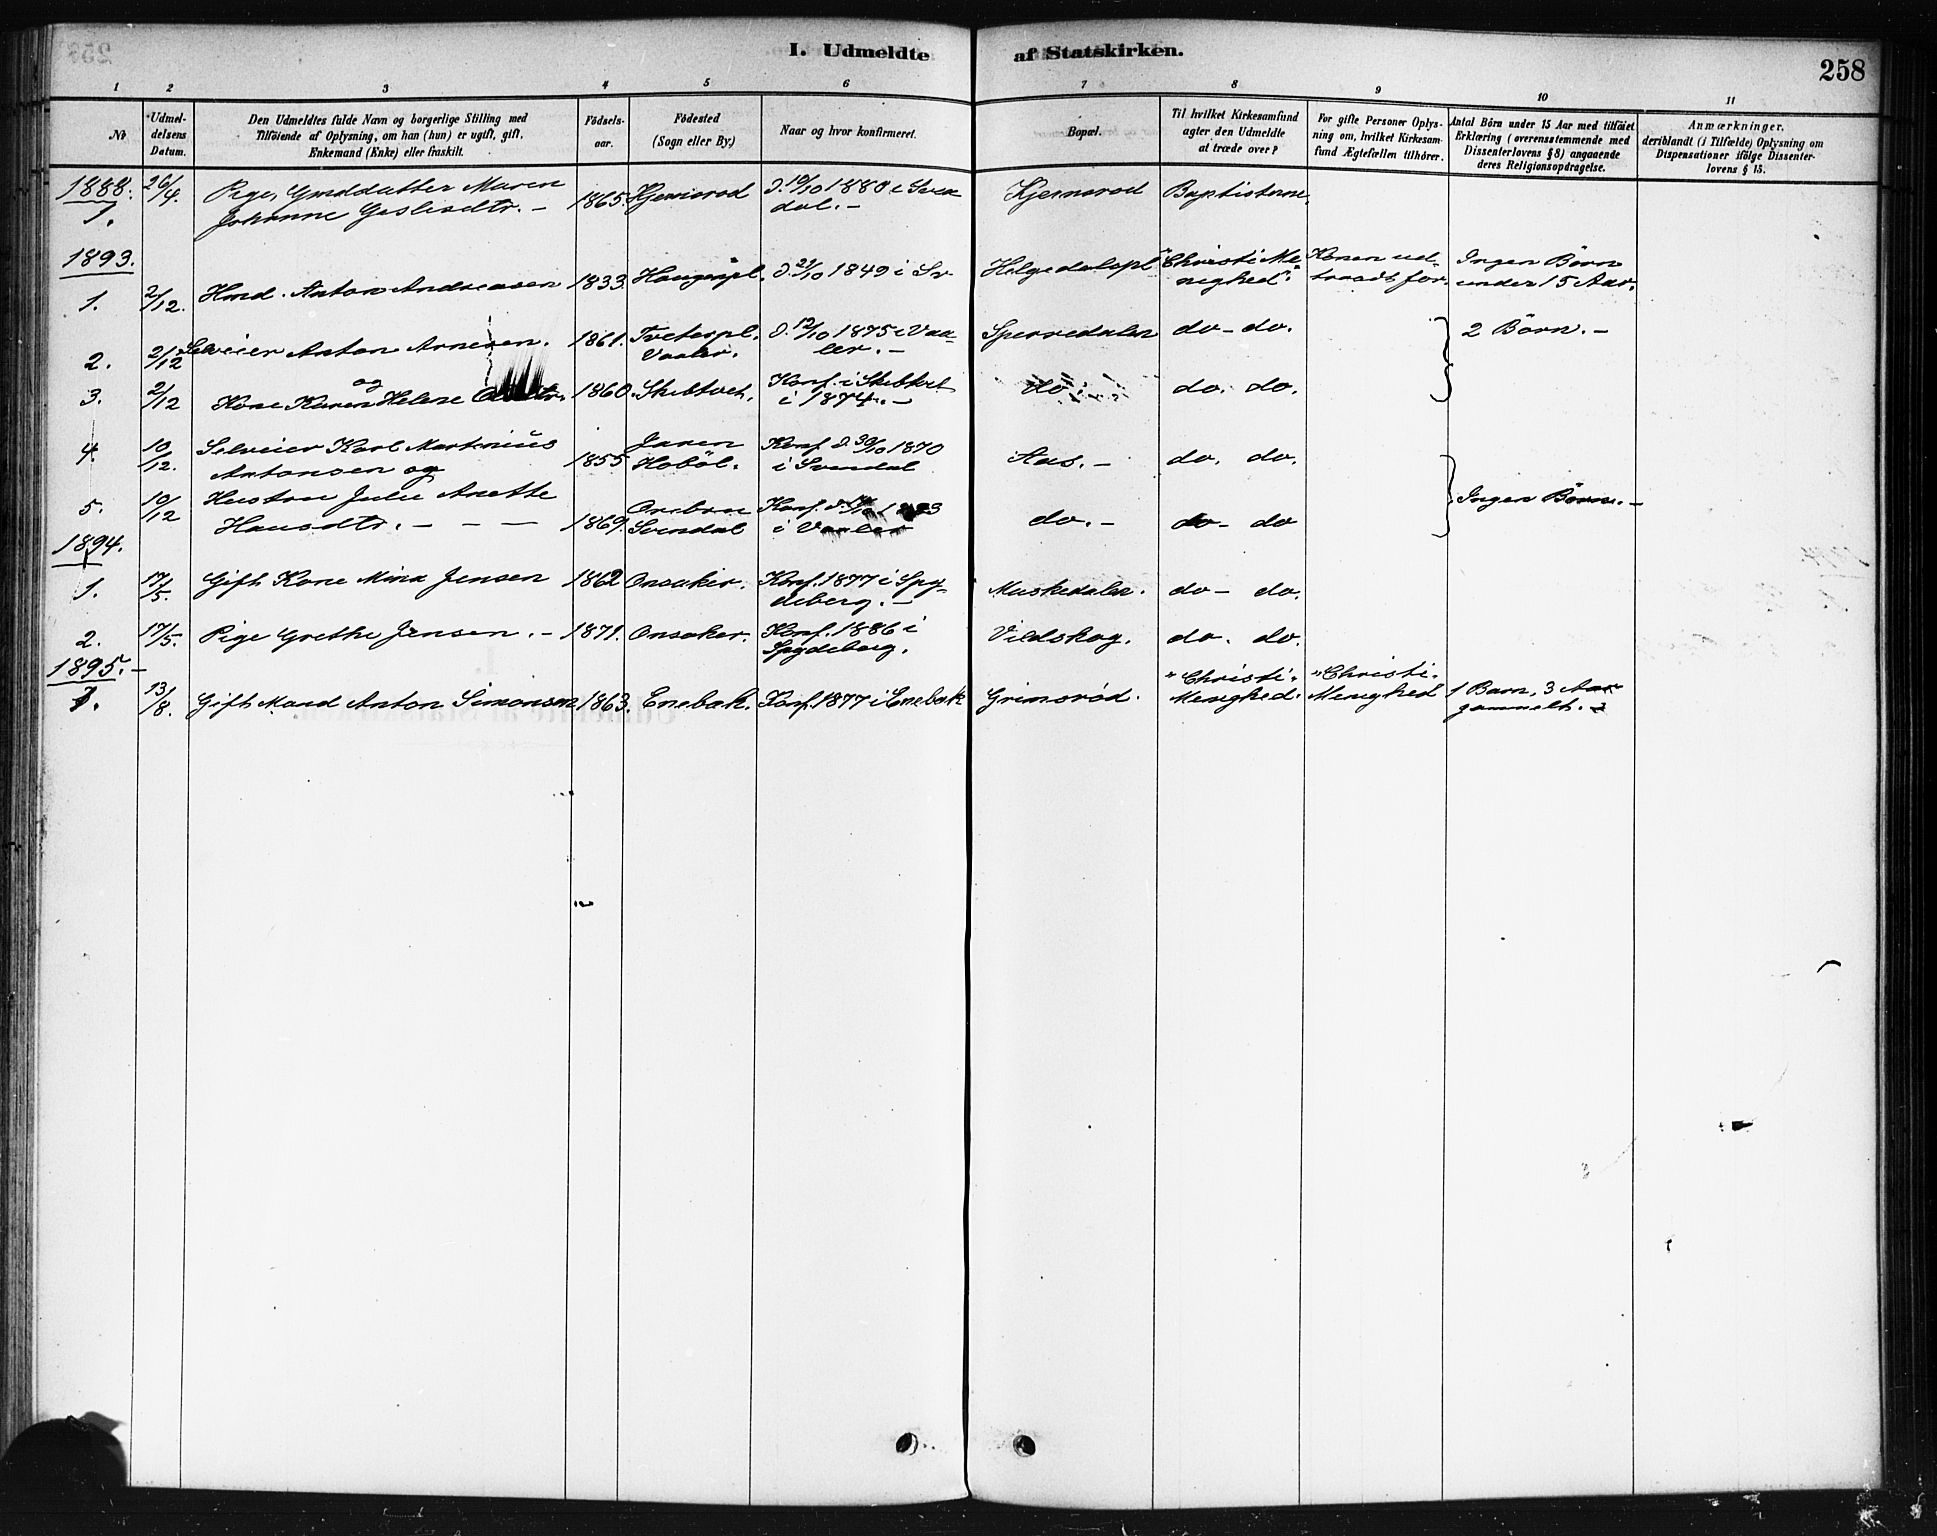 I. Udmeldte af Statskirken.
258
1 2 3 4 5 6 7 8 9 10 11
No
Udmeldelsens Datum.
Den Udmeldtes fulde Navn og borgerlige Stilling med
Tilføiende af Oplysning, om han (hun) er ugift, gift,
Enkemand (Enke) eller fraskilt.
Fødselsaar.
Fødested
(Sogn eller By.)
Naar og hvor konfirmeret.
Bopæl.
Til hvilket Kirkesamfund
agter den Udmeldte
at træde over?
For gifte Personer Oplysning om, hvilket Kirkesamfund Ægtefællen tilhører.
Antal Børn under 15 Aar med tilføiet
Erklæring (overensstemmende med
Dissenterlovens § 8) angaaende
deres Religionsopdragelse.
Anmærkninger,
deriblandt (i Tilfælde) Oplysning om
Dispensationer ifølge Dissenterlovens § 13.
1888.
1. 26/4. Pige, Maren
Johanne 1865. 1880 i Baptisterne.
1893.
1. 2/12. Anton Andreasen 1833. 1849 i Sv Helgedalspl "Christi Menighed". Konen udtraadt før. Ingen Børn
under 15 Aar.
2. 2/12 Selveier Anton Arnesen. 1861. Tveterpl.
Vaaler. d. 12/10 1875 i Vaaler. - do - do. 2 Børn. -
og
3. 2/12 Kone Karen Helene 1860. Skibtvet. Konf. i Skibtvet
i 1874. - do. do. do.
4. 10/12. Selveier Karl Martinius
Antonsen og 1855 Hobøl. Konf. d. 30/10 1870
i Svendal Aas. - do. do.
5. 10/12 Hustru Julie Anette
Hansdtr. - - - 1869. Svendal Konf. i Vaaler do. - do - do Ingen Børn. -
1894.
1. 17/5. Gift Kone Mina Jensen 1862 Onsaker. Konf. 1877 i Spydeberg. - Muskedalen. do - do.
2. 17/5. Pige Grethe Jensen. - 1871. Onsaker. Konf. 1886 i
Spydeberg. Vildskog. do. do.
1895. -
1. 13/8. Gift Mand Anton Simonsen 1863. Enebak. Konf. 1877 i Enebak Grimsrød. "Christi Menighed. "Christi Menighed 1 Barn, 3 Aar
gammelt. -